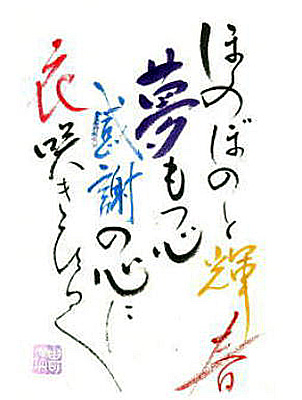 ほのぼのと輝く春
夢もつ心
感謝の心に
花咲きひらく